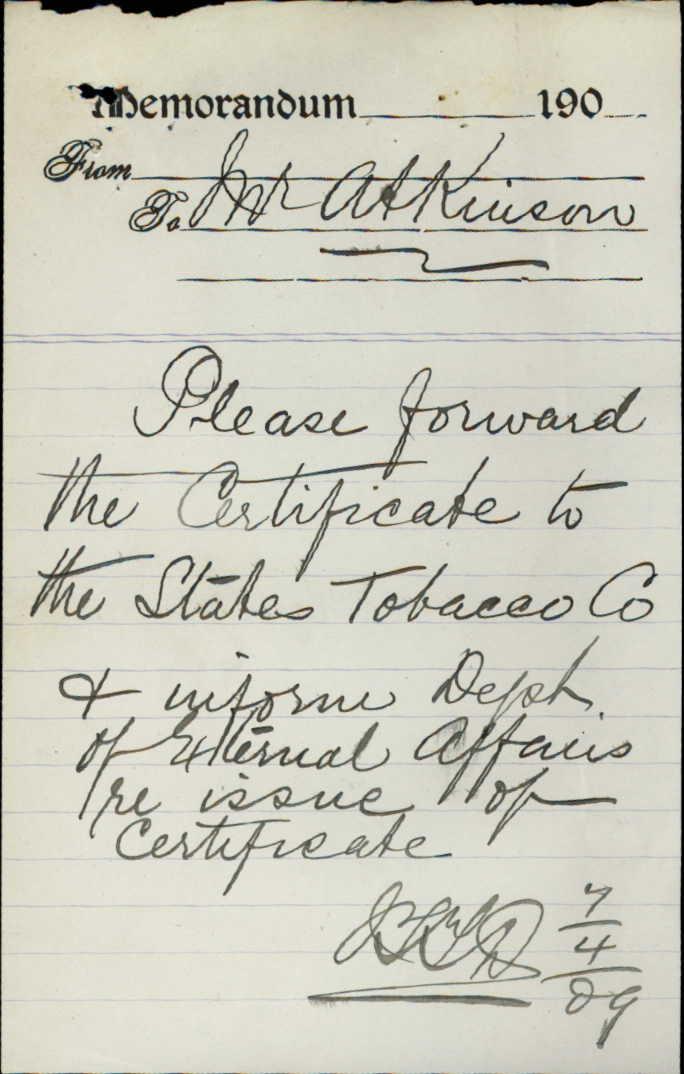 Memorandum 190
From
To Mr Atkinson
Please forward
the Certificate to
the States Tobacco Co
& inform Dept
of External Affairs
re issue of
Certificate
7
4
09